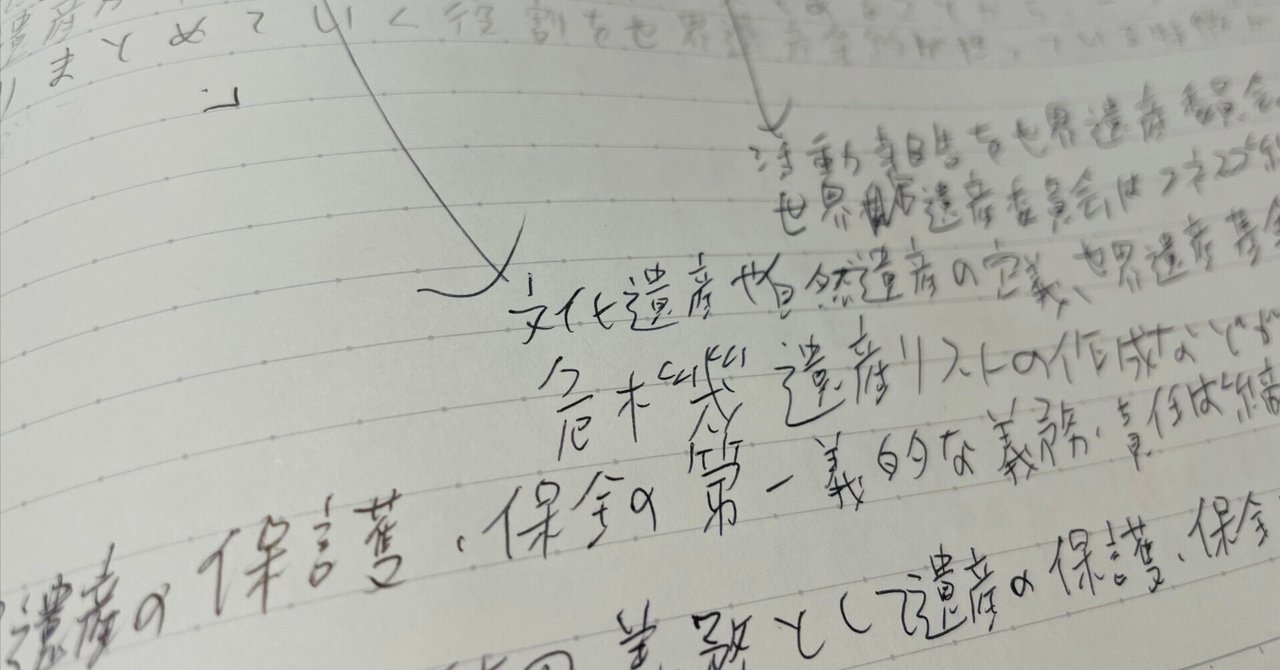 遺産
りまとめていく役割を世界遺産
「
活動報告を世界遺産委員会
世界遺産委員会は
文化遺産や自然遺産の定義、世界遺産基金
危機遺産リストの作成などが
遺産の保護、保全の第一義的な義務・責任は締
義務として遺産の保護、保全